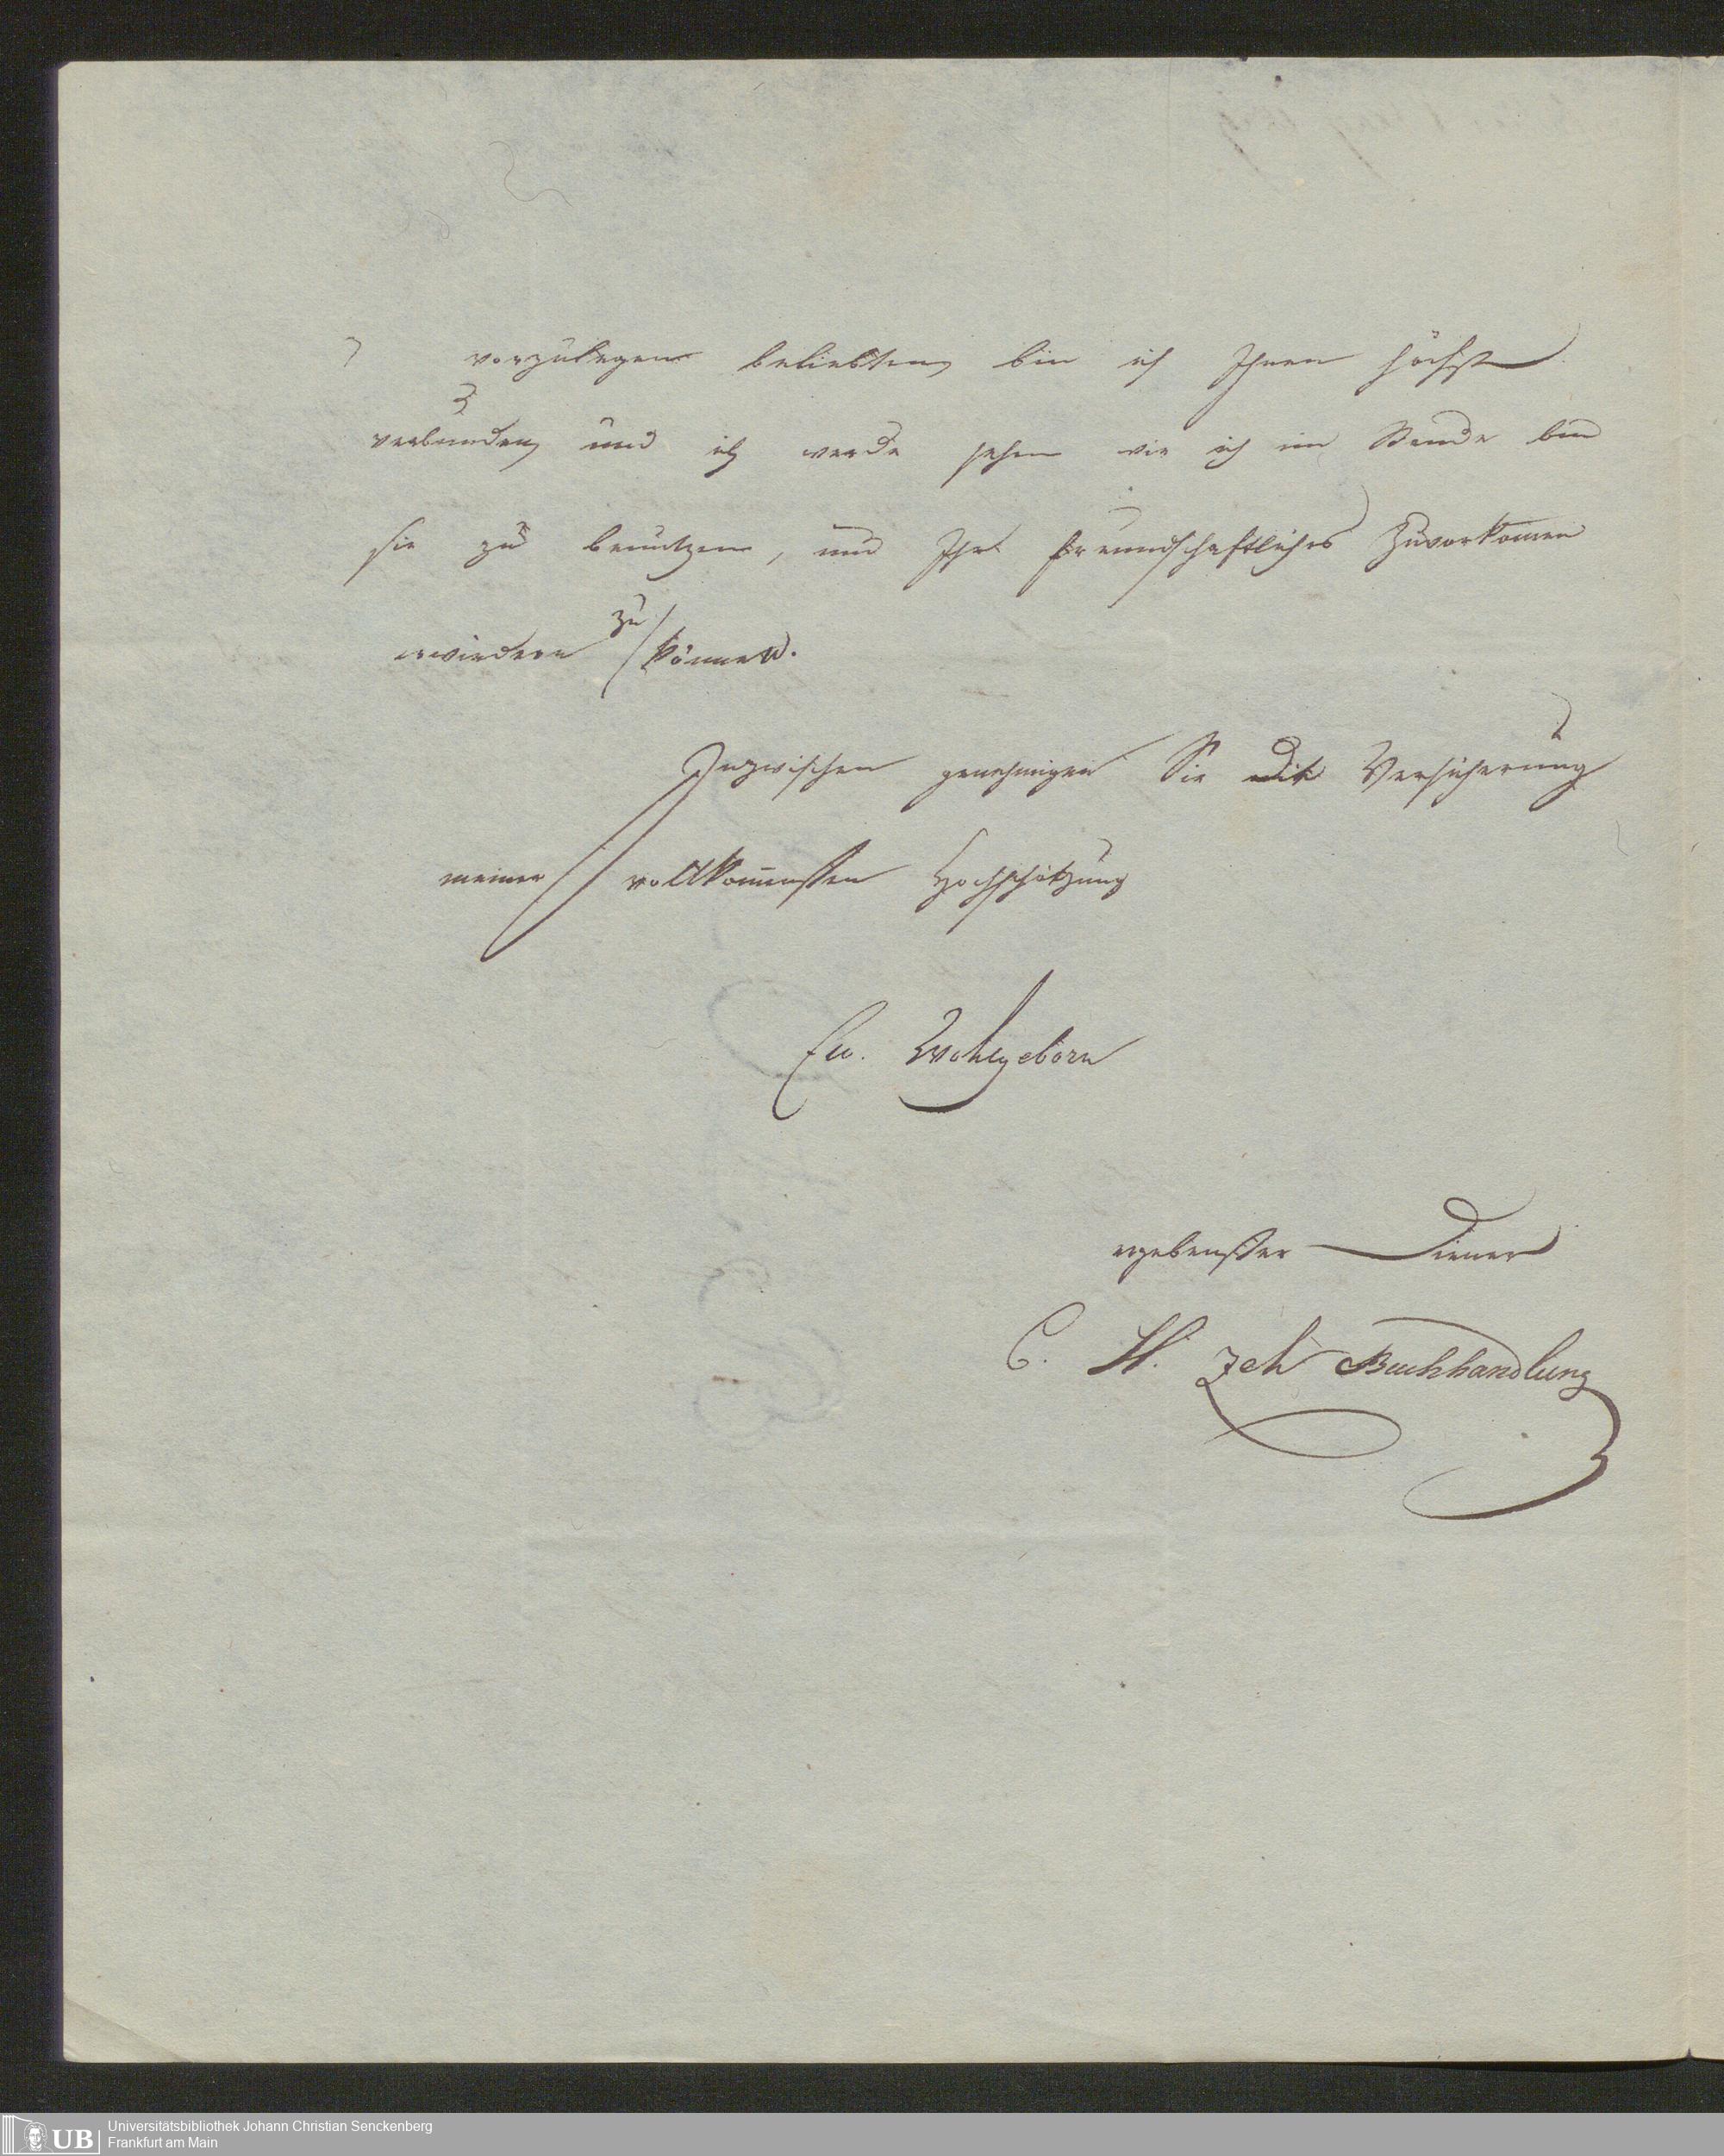 vorzulegen beliebten bin ich Ihnen höchst
verbunden und ich werde sehen wie ich im Stande bin
sie zu benutzen, und Ihr freundschaftliches Zuvorkom̄en
erwiedern zu können.
Inzwischen genehmigen Sie die Versicherung
meiner vollkom̄ensten Hochschätzung
Ew. Wohlgeborn
ergebenster Diener
C. H. Zeh Buchhandlung
UB Universitätsbibliothek Johann Christian Senckenberg
Frankfurt am Main